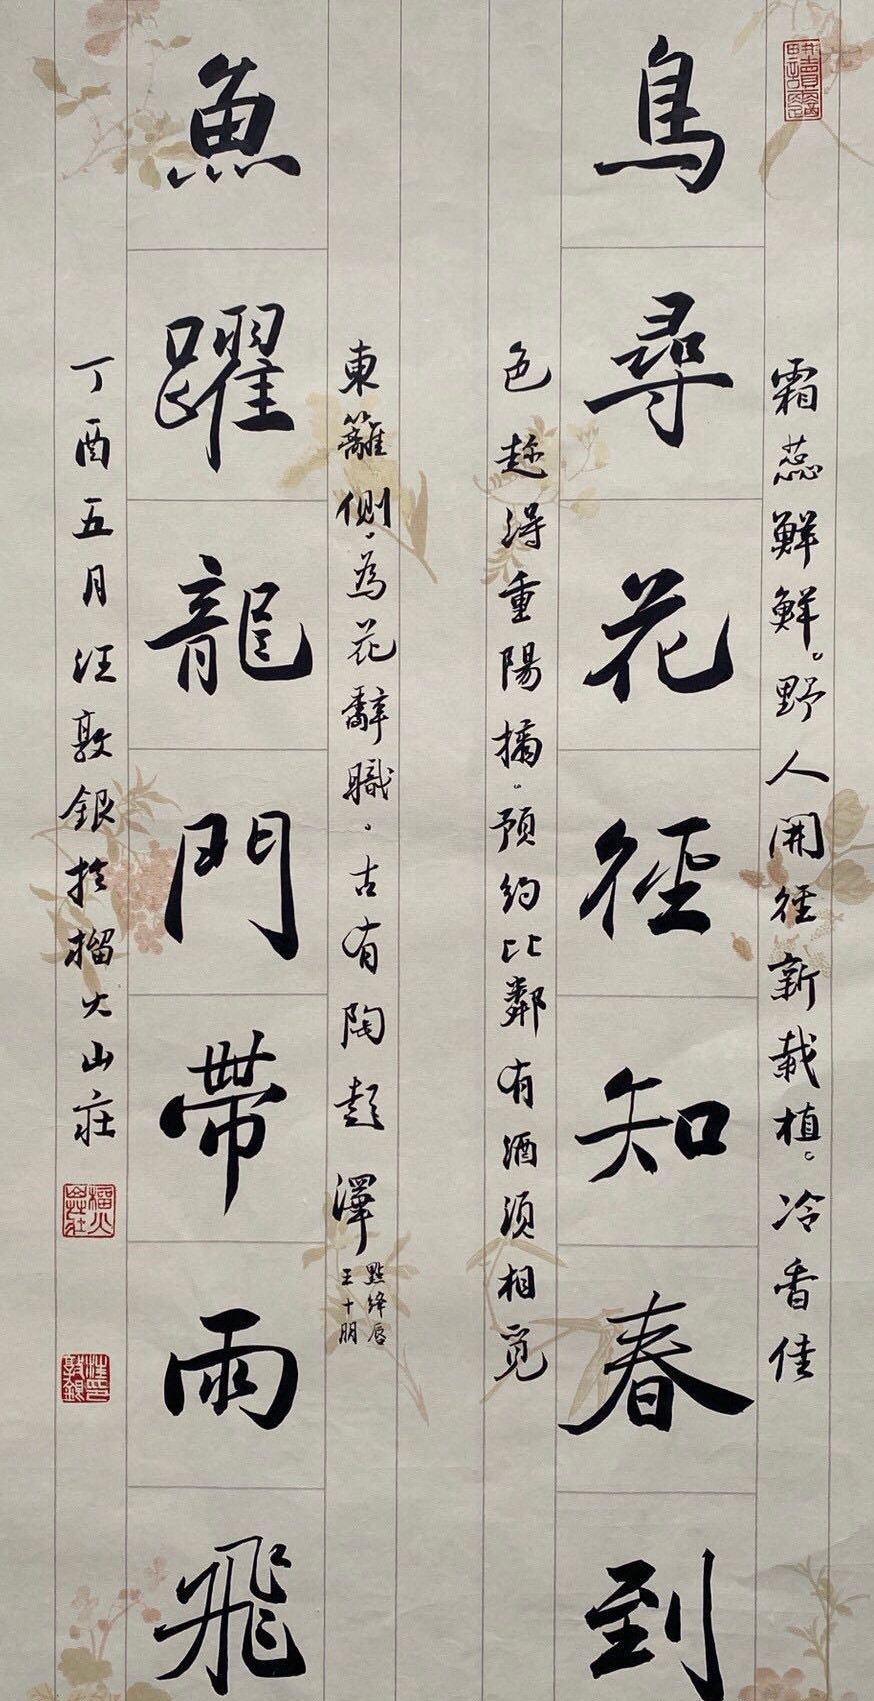 霜蕊鮮鮮。野人開徑新栽植。冷香佳
鳥尋花徑知春到
色趁得重陽摘。預約比鄰有酒須相覓
東籬側。為花辭職。古有陶彭澤
點絳唇
王十朋
魚躍龍門帶雨飛
丁酉五月汪敦銀於榴火山莊
榴火山莊
汪敦銀印